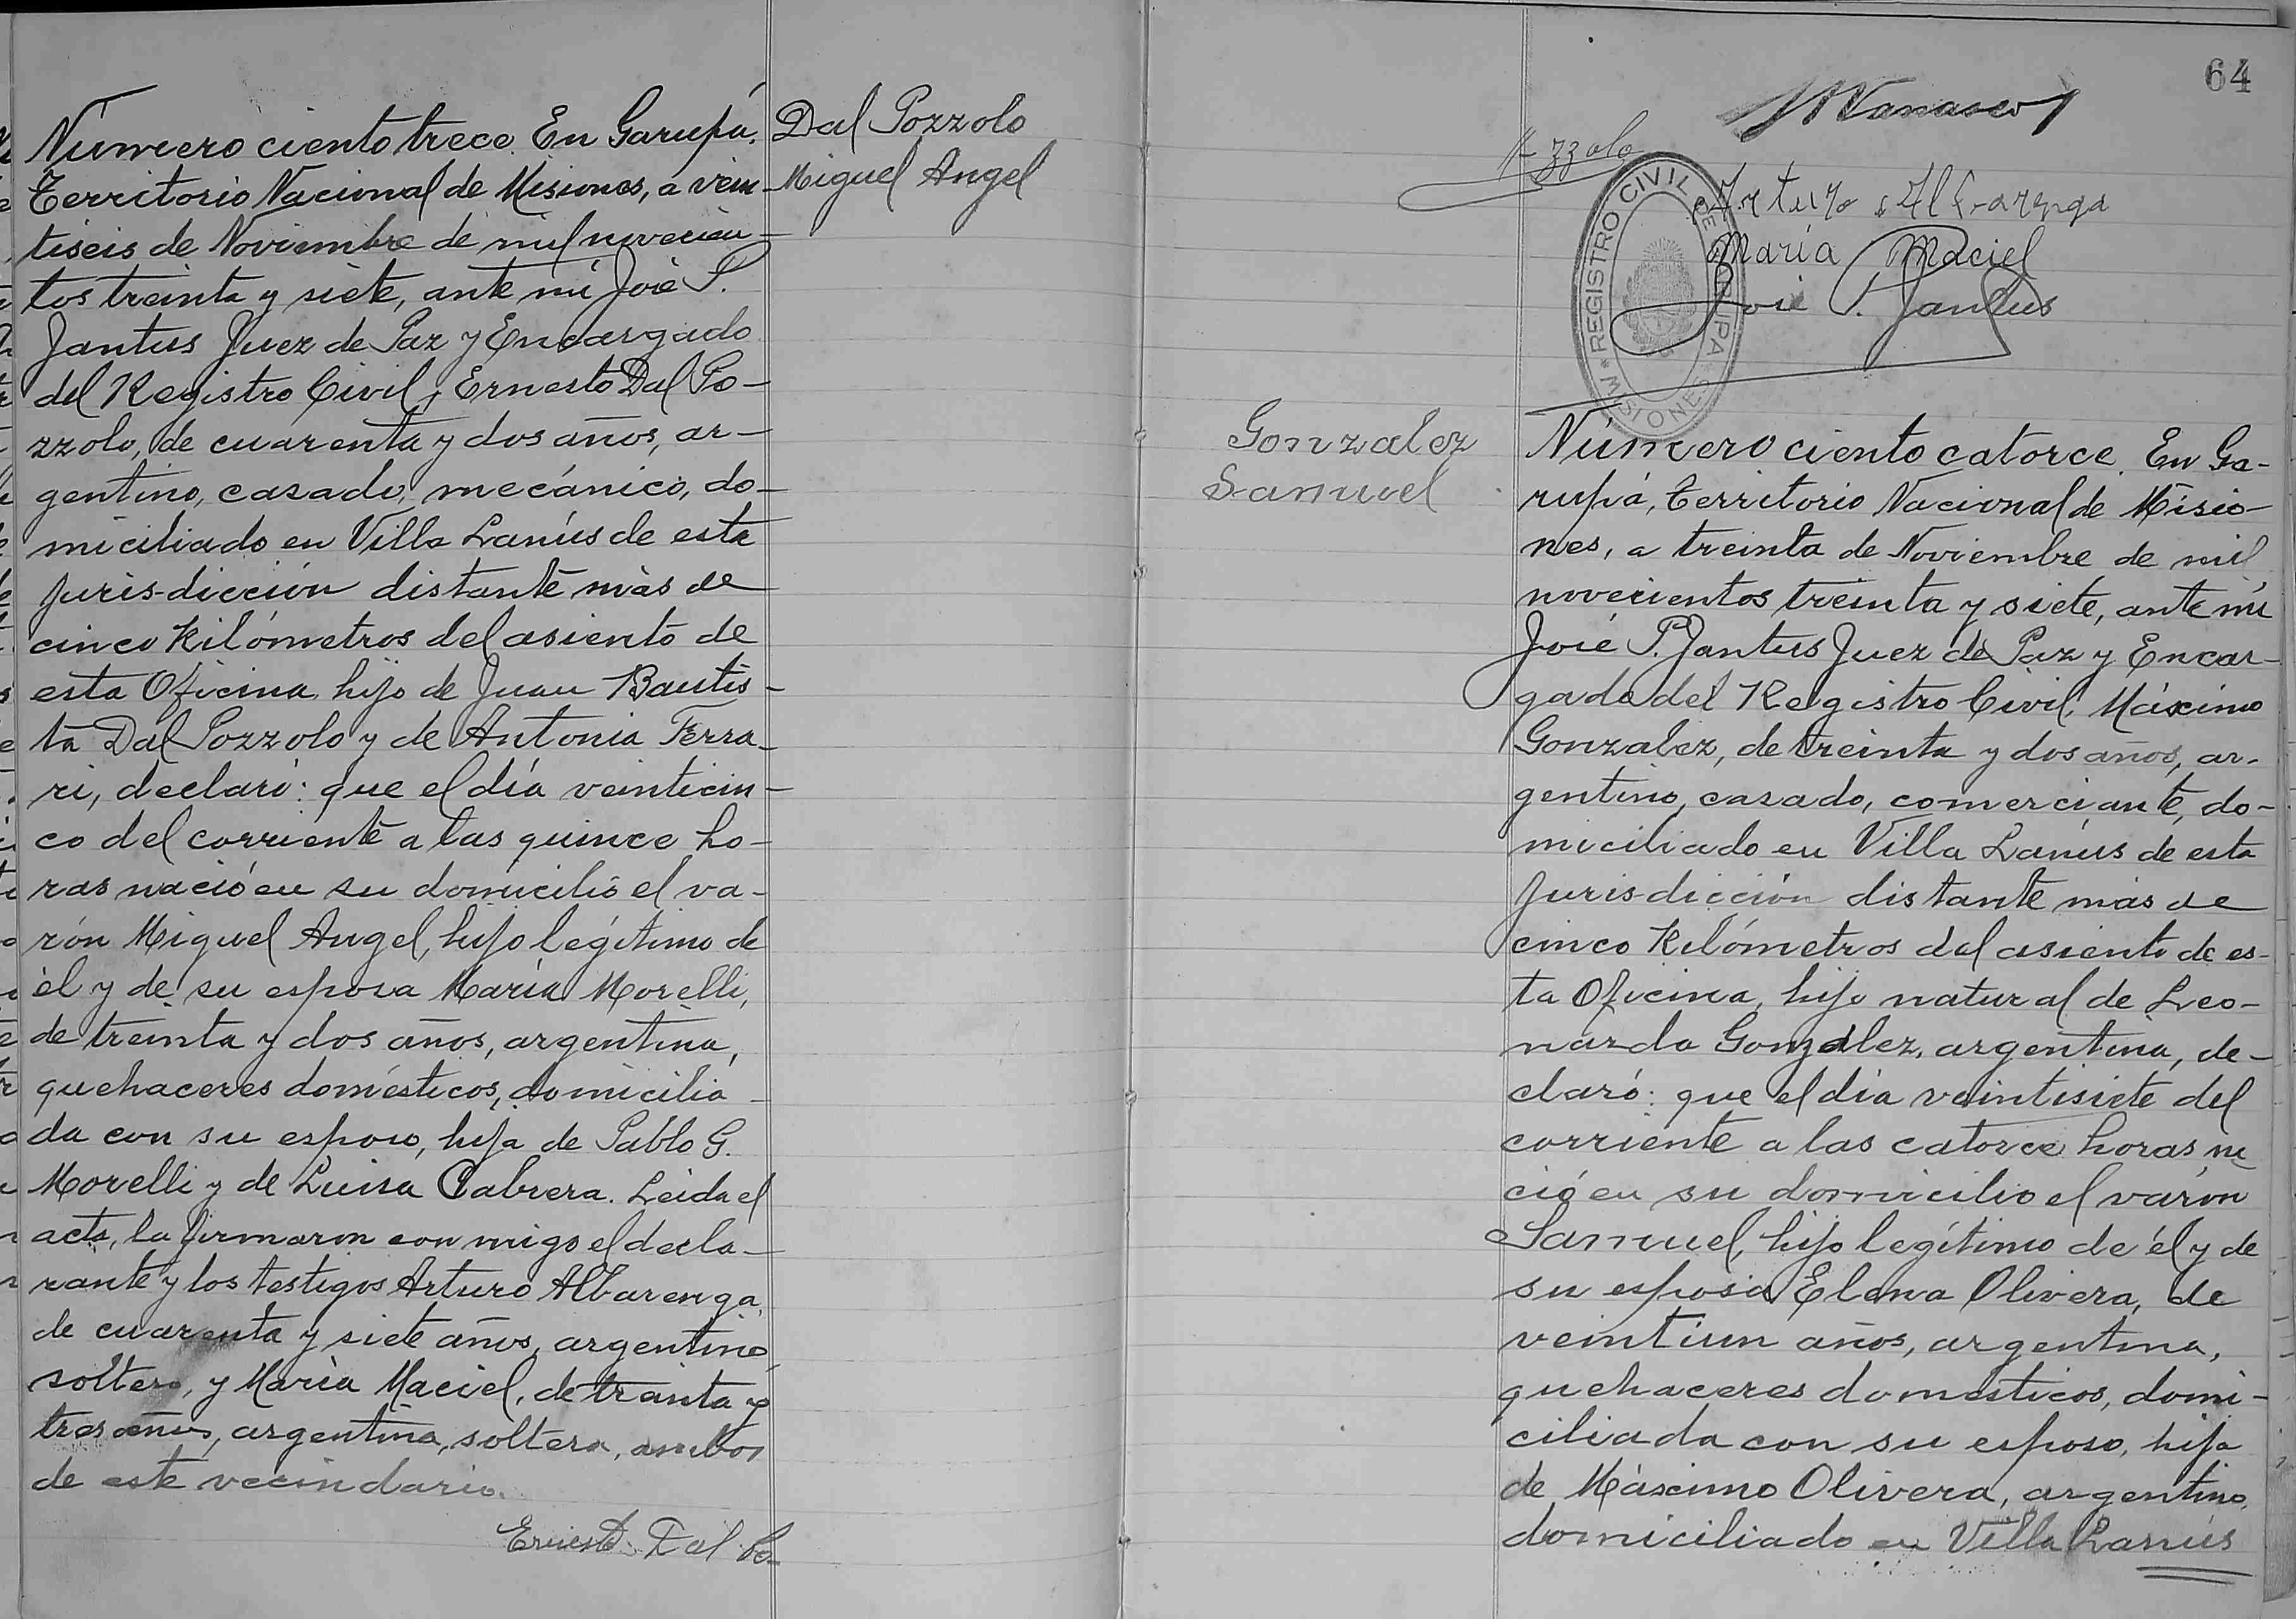 Número ciento trece. En Garupá,
Territorio Nacional de Misiones, a vein-
tiseis de Noviembre de mil novecien-
tos treinta y siete, ante mí José P.
Jantus Juez de Paz y Encargado
del Registro Civil, Ernesto Dal Po-
zzolo, de cuarenta y dos años, ar-
gentino, casado, mecánico, do-
miciliado en Villa Lanús de esta
Jurisdicción distante más de
cinco Kilómetros del asiento de
esta Oficina, hijo de Juan Bautis-
ta Dal Pozzolo y de Antonia Ferra-
ri, declaró: que el día veinticin-
co del corriente a las quince ho-
ras nació en su domicilio el va-
rón Miguel Angel, hijo legítimo de
él y de su esposa María Morelli,
de treinta y dos años, argentina,
quehaceres domésticos, domicilia-
da con su esposo, hija de Pablo G.
Morelli y de Luisa Cabrera. Leida el
acta, la firmaron conmigo el decla-
rante y los testigos Arturo Albarenga,
de cuarenta y siete años, argentino,
soltero, y María Maciel, de treinta y
tres años, argentina, soltera, ambos
de este vecindario.
Ernesto Dal Po-
Dal Pozzolo
Miguel Angel
64
zzolo
Arturo Alfarenga
María Maciel
José P. Jantus
REGISTRO CIVIL DE GARUPA
MISIONES
Gonzalez
Samuel
Número ciento catorce. En Ga-
rupá, Territorio Nacional de Misio-
nes, a treinta de Noviembre de mil
novecientos treinta y siete, ante mí
José P. Jantus Juez de Paz y Encar-
gado del Registro Civil, Máximo
Gonzalez, de treinta y dos años, ar-
gentino, casado, comerciante, do-
miciliado en Villa Lanús de esta
Jurisdicción distante más de
cinco Kilómetros del asiento de es-
ta Oficina, hijo natural de Leo-
narda González, argentina, de-
claró: que el día veintisiete del
corriente a las catorce horas na
ció en su domicilio el varón
Samuel, hijo legítimo de él y de
su esposa Elena Olivera, de
veintiun años, argentina,
quehaceres domésticos, domi-
ciliada con su esposo, hija
de Máximo Olivera, argentino,
domiciliado en Villa Lanús